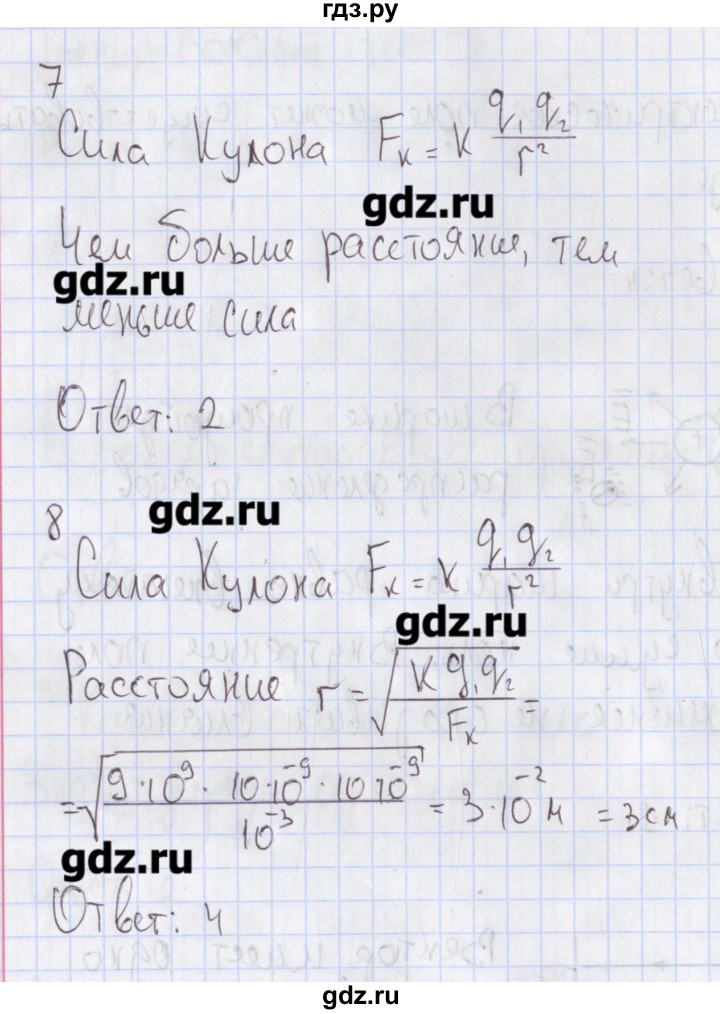 гдз.ру
7
Сила Кулона Fк = к q₁q₂ / r²
gdz.ru
Чем больше расстояние, тем
gdz.ru
меньше сила
Ответ: 2
gdz.ru
8
Сила Кулона Fк = к q₁q₂ / r²
gdz.ru
Расстояние r = √(к q₁q₂ / Fк) =
= √(9·10⁹ · 10·10⁻⁹ · 10·10⁻⁹ / 10⁻³) = 3·10⁻² м = 3 см
gdz.ru
Ответ: 4
gdz.ru